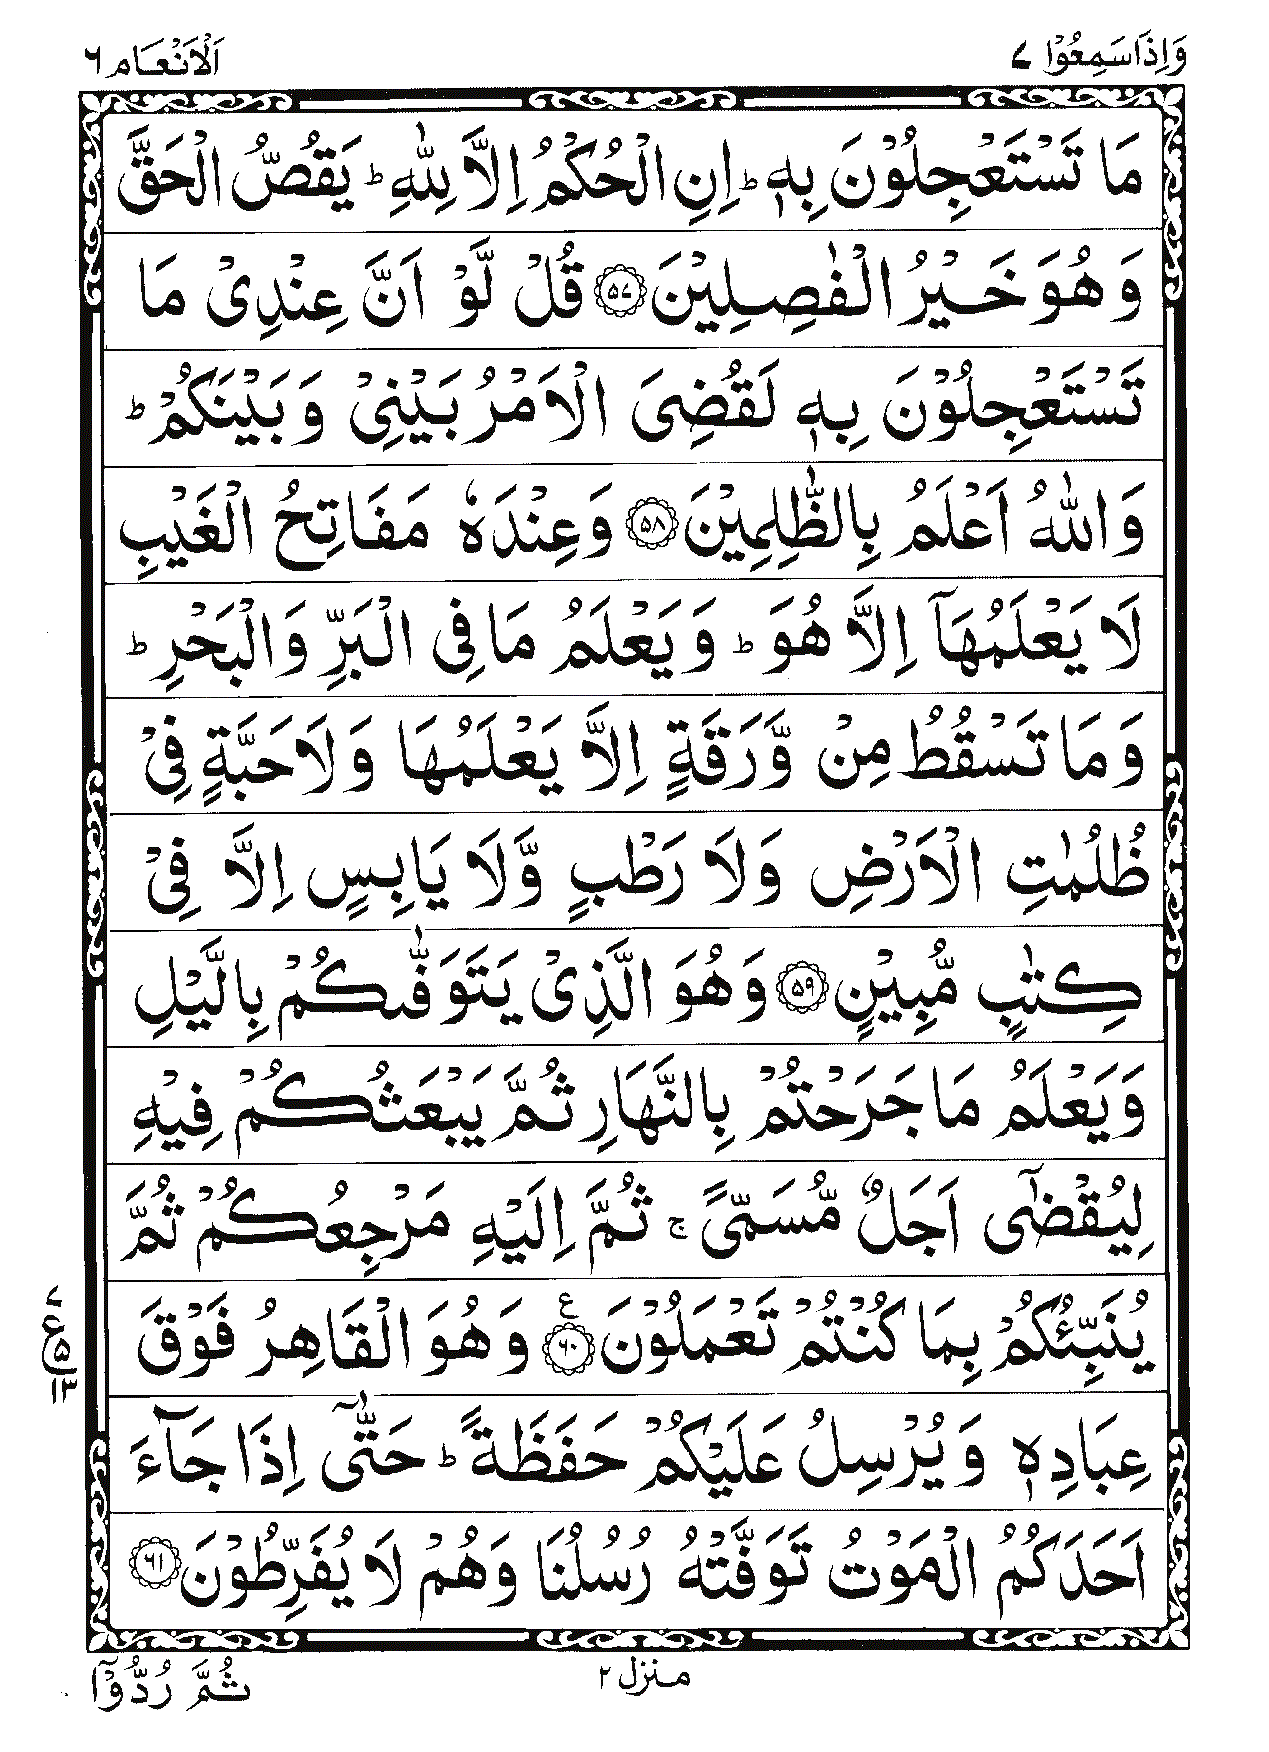 وَاِذَاسَمِعُوْا ٧
اَلْاَنْعَام ٦
مَا تَسْتَعْجِلُوْنَ بِهٖ ؕ اِنِ الْحُكْمُ اِلَّا لِلّٰهِ ؕ يَقُصُّ الْحَقَّ
وَهُوَ خَيْرُ الْفٰصِلِيْنَ ﴿۵۷﴾ قُلْ لَّوْ اَنَّ عِنْدِىْ مَا
تَسْتَعْجِلُوْنَ بِهٖ لَقُضِىَ الْاَمْرُ بَيْنِىْ وَبَيْنَكُمْ ؕ
وَاللّٰهُ اَعْلَمُ بِالظّٰلِمِيْنَ ﴿۵۸﴾ وَعِنْدَهٗ مَفَاتِحُ الْغَيْبِ
لَا يَعْلَمُهَاۤ اِلَّا هُوَ ؕ وَيَعْلَمُ مَا فِى الْبَرِّ وَالْبَحْرِ ؕ
وَمَا تَسْقُطُ مِنْ وَّرَقَةٍ اِلَّا يَعْلَمُهَا وَلَا حَبَّةٍ فِىْ
ظُلُمٰتِ الْاَرْضِ وَلَا رَطْبٍ وَّلَا يَابِسٍ اِلَّا فِىْ
كِتٰبٍ مُّبِيْنٍ ﴿۵۹﴾ وَهُوَ الَّذِىْ يَتَوَفّٰٮكُمْ بِالَّيْلِ
وَيَعْلَمُ مَا جَرَحْتُمْ بِالنَّهَارِ ثُمَّ يَبْعَثُكُمْ فِيْهِ
لِيُقْضٰٓى اَجَلٌ مُّسَمًّى ۚ ثُمَّ اِلَيْهِ مَرْجِعُكُمْ ثُمَّ
يُنَبِّئُكُمْ بِمَا كُنْتُمْ تَعْمَلُوْنَ ﴿۶۰﴾ ع وَهُوَ الْقَاهِرُ فَوْقَ
٧
ع
۵
١٣
عِبَادِهٖ وَيُرْسِلُ عَلَيْكُمْ حَفَظَةً ؕ حَتّٰٓى اِذَا جَآءَ
اَحَدَكُمُ الْمَوْتُ تَوَفَّتْهُ رُسُلُنَا وَهُمْ لَا يُفَرِّطُوْنَ ﴿۶۱﴾
منزل ٢
ثُمَّ رُدُّوْۤا